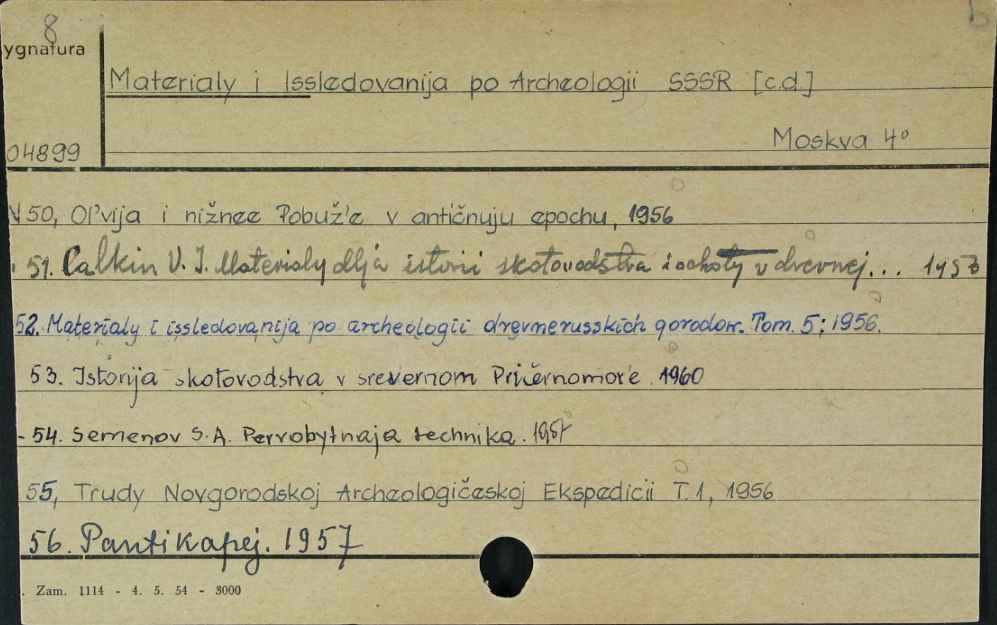 8
ygnatura
Materialy i Issledovanija po Archeologii SSSR [c.d.]
04899
Moskva 4°
N 50, Ol'vija i nižnee Pobuž'e v antičnuju epochu, 1956
51. Calkin V. I. Materialy dlja istorii skotovodstva i ochoty v drevnej... 1956
52. Materialy i issledovanija po archeologii drevnerusskich gorodow. Tom. 5; 1956.
53. Istorija skotovodstva v srevernom Pričernomor'e. 1960
- 54. Semenov S.A. Pervobytnaja technika. 1957
55, Trudy Novgorodskoj Archeologičeskoj Ekspedicii T.1, 1956
56. Pantikapej. 1957
. Zam. 1114 - 4. 5. 54 - 3000